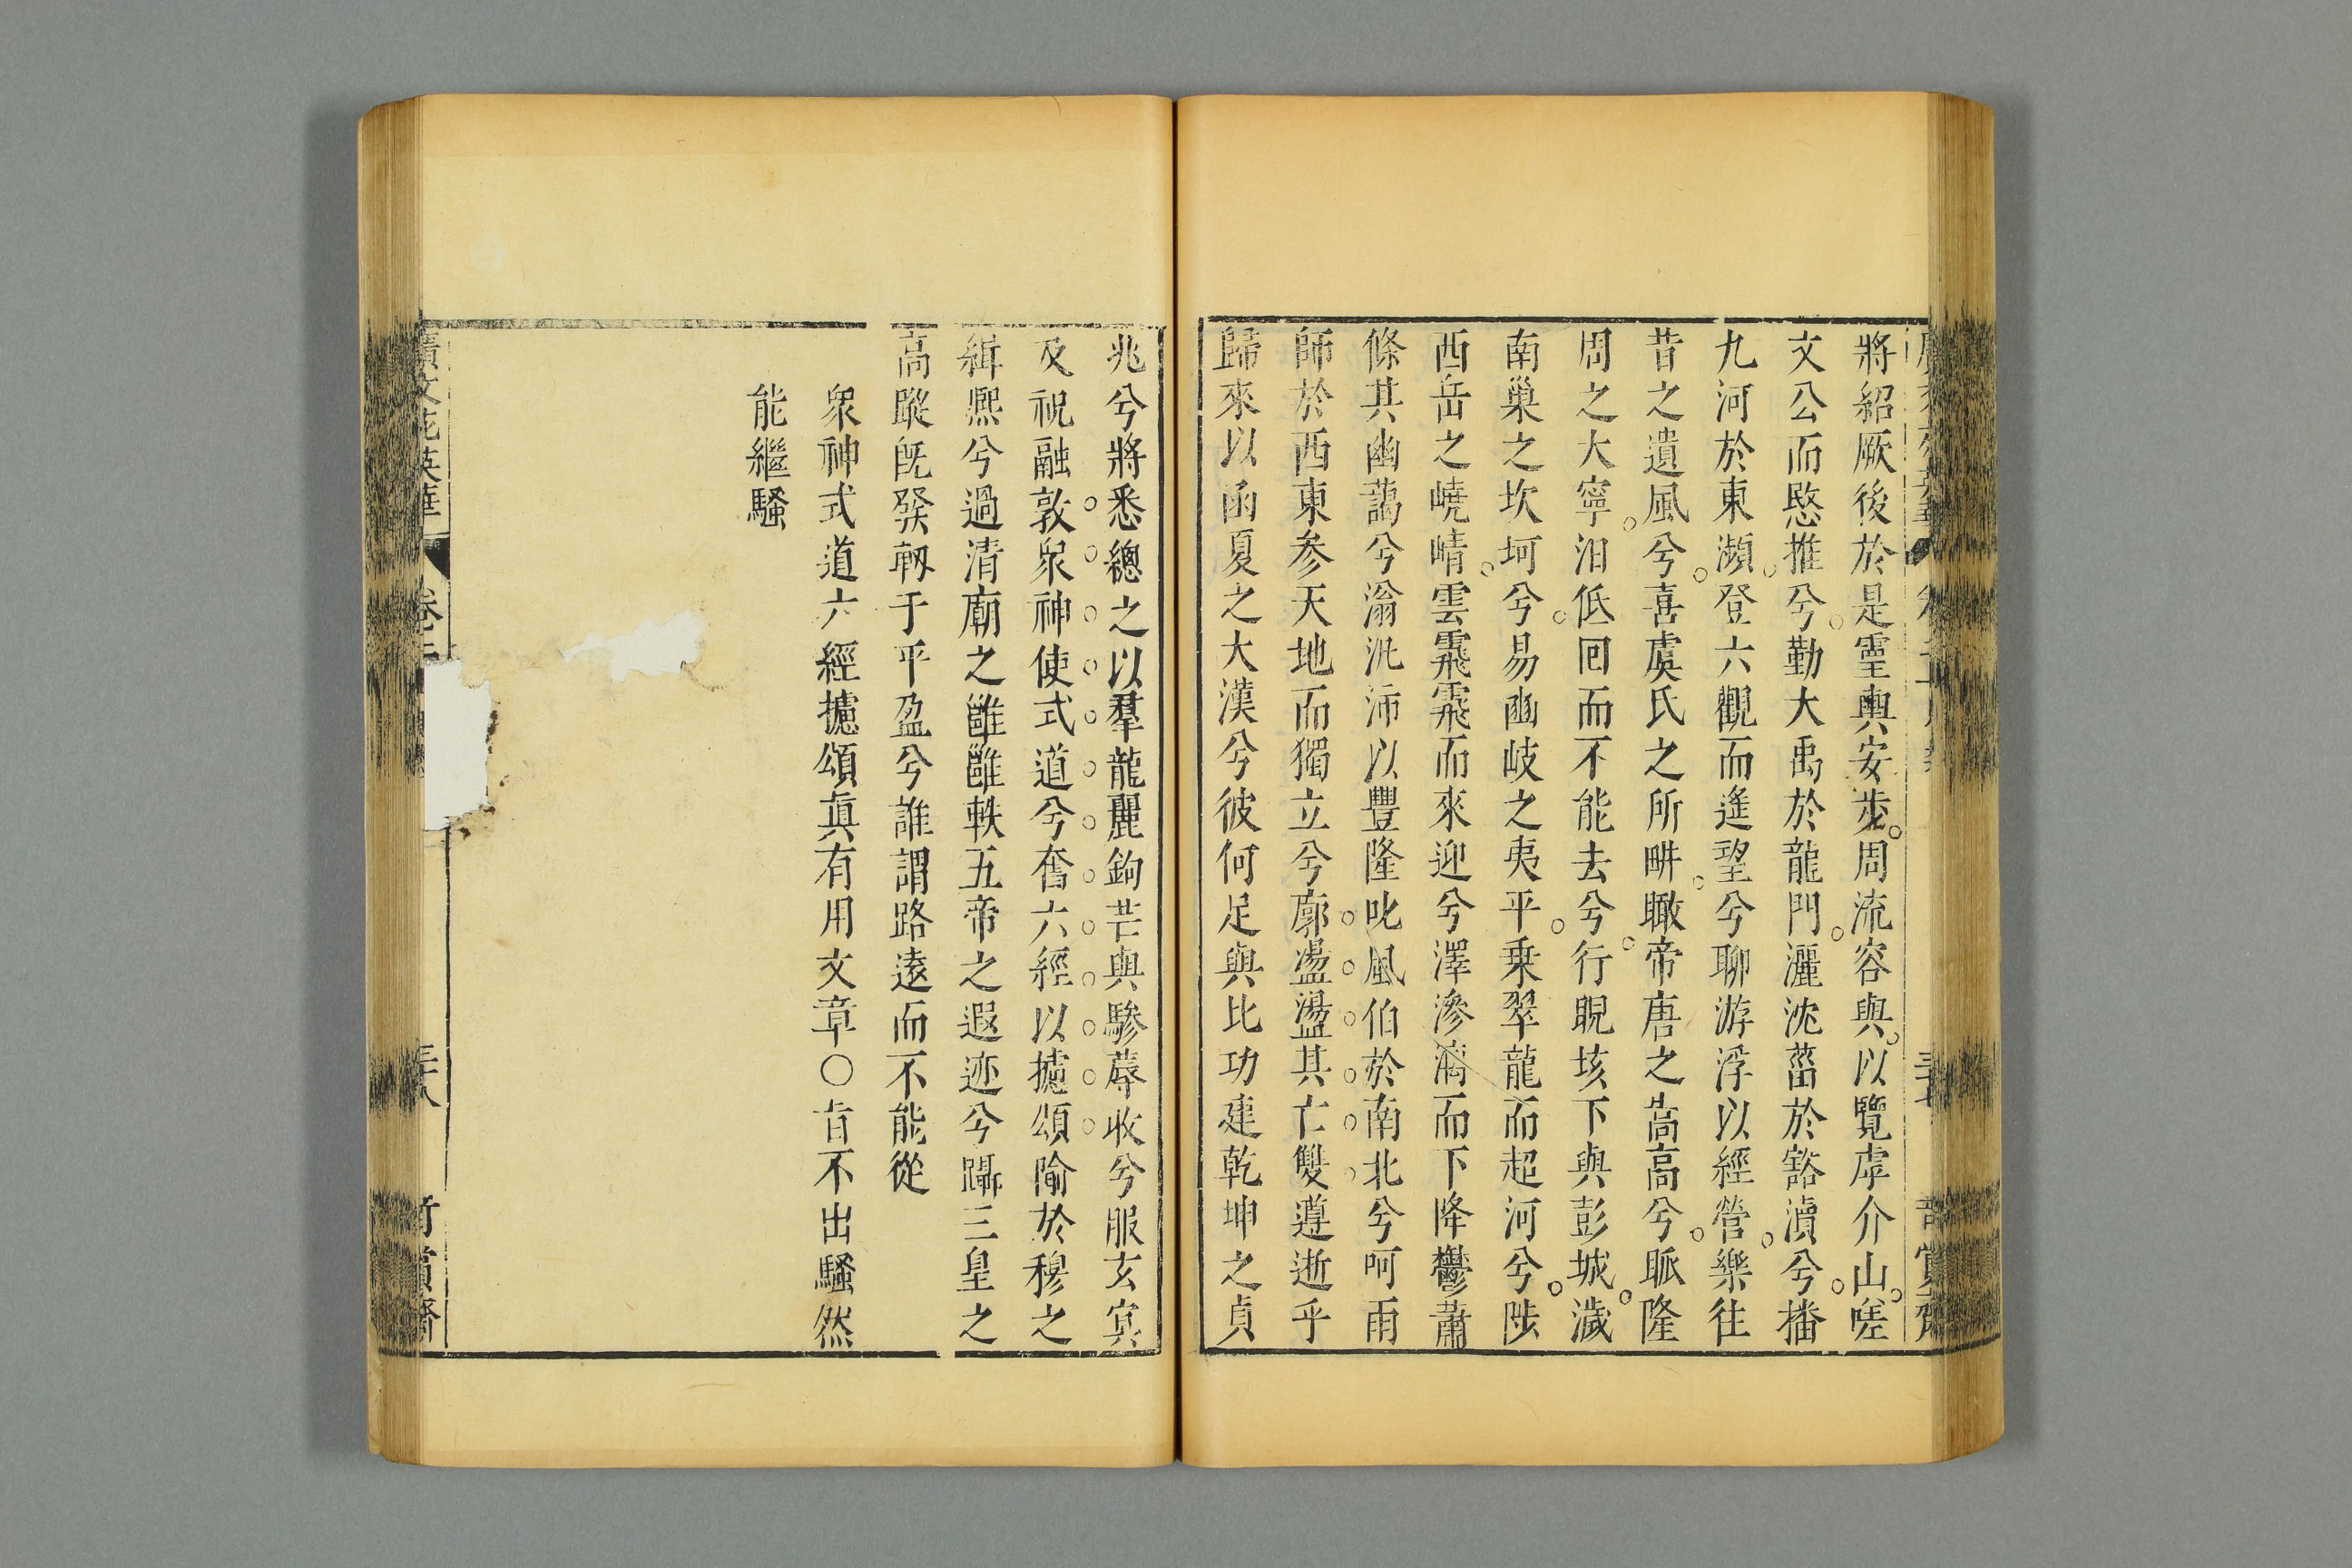 將紹厥後於是靈輿安步周流容與以覽虖介山嗟
文公而愍推兮勤大禹於龍門灑沈菑於豁瀆兮播
九河於東瀕登六觀而遙望兮聊游浮以經營樂往
昔之遺風兮喜虞氏之所畊瞰帝唐之嵩高兮眽隆
周之大寧汨低回而不能去兮行睨垓下與彭城濊
南巢之坎坷兮易豳岐之夷平乗翠龍而超河兮陟
西岳之嶢崝雲霏霏而來迎兮澤滲漓而下降鬱蕭
條其幽藹兮滃汎沛以豐隆叱風伯於南北兮呵雨
師於西東参天地而獨立兮廓盪盪其亡雙遵逝乎
歸來以函夏之大漢兮彼何足與比功建乾坤之貞
兆兮將悉總之以羣龍麗鉤芒與驂蓐收兮服玄冥
及祝融敦衆神使式道兮奮六經以攄頌隃於穆之
緝熙兮過清廟之雝雝軼五帝之遐迹兮躡三皇之
高蹤旣發軔于平盈兮誰謂路遠而不能從
衆神式道六經攄頌真有用文章〇旨不出騷然
能繼騷